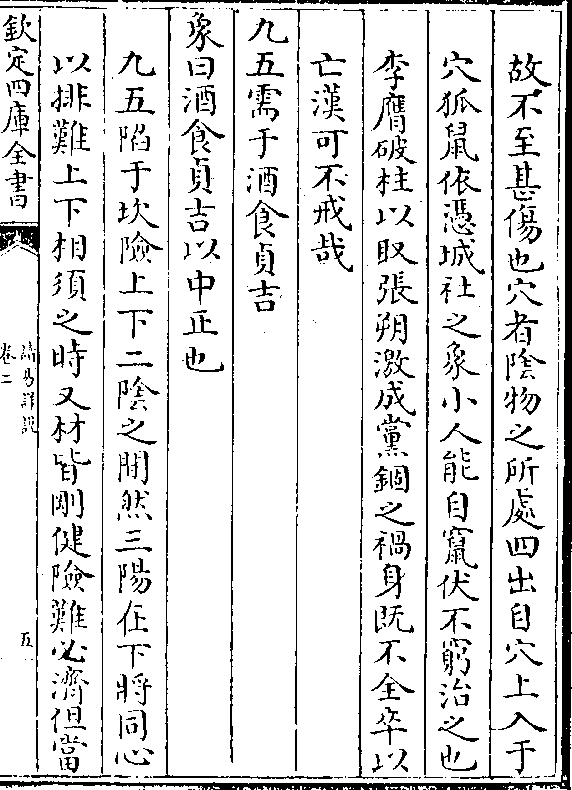 故不至甚傷也穴者陰物之所處四出自穴上入于
穴狐鼠依憑城社之象小人能自竄伏不窮治之也
李膺破柱以取張朔激成黨錮之禍身既不全卒以
亡漢可不戒哉
九五需于酒食貞吉
象曰酒食貞吉以中正也
九五陷于坎險上下二陰之間然三陽在下將同心
以排難上下相須之時又材皆剛健險難必濟但當
欽定四庫全書
讀易詳說
卷二
五